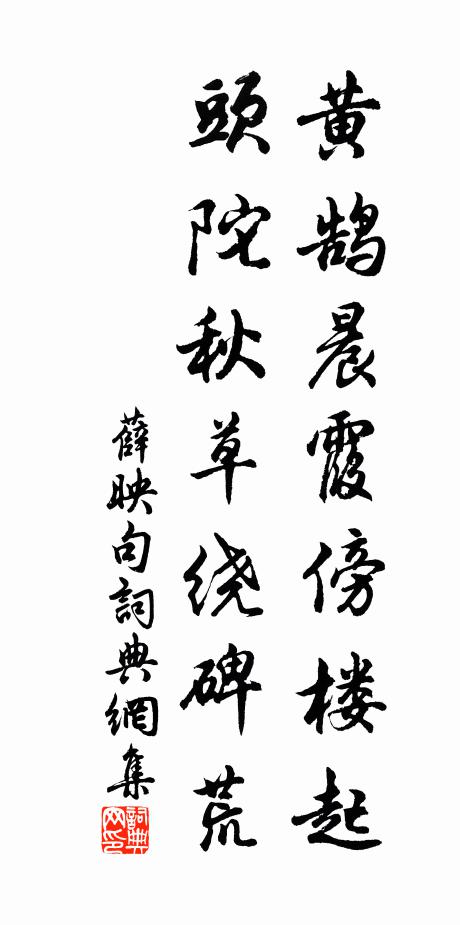 黄鹄晨霞傍楼起
頭陀秋草绕碑荒
薛映句詞典網集
詞典
网印